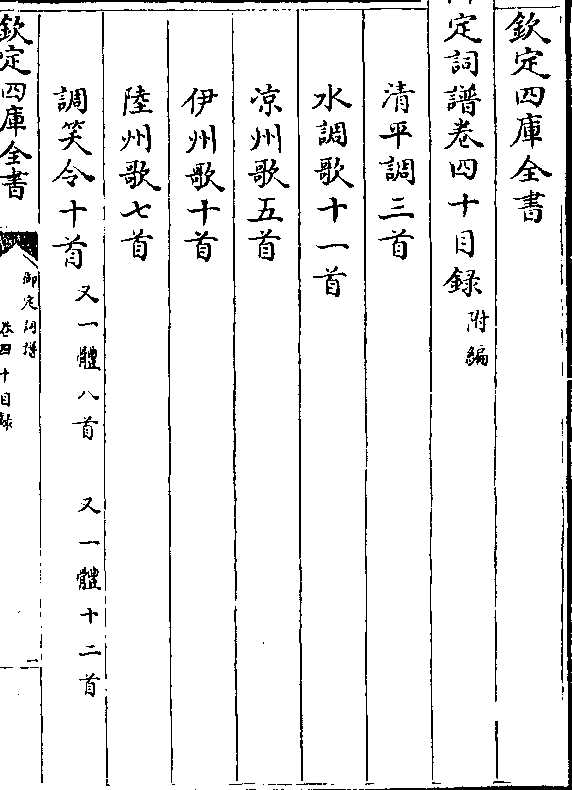 欽定四庫全書
定詞譜卷四十目録 附編
清平調三首
水調歌十一首
凉州歌五首
伊州歌十首
陸州歌七首
調笑令十首 又一體八首 又一體十二首
欽定四庫全書 御定詞譜 卷四十目録 一